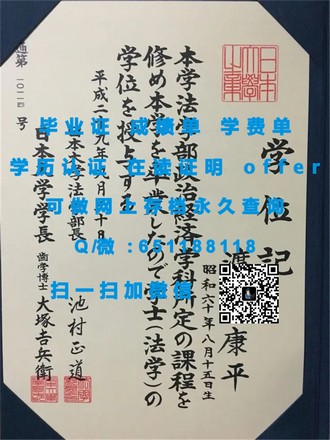 学位記
康平
昭和六十年八月十五日生
本学法学部政治経済学科所定の課程を
修め本学を卒業したので学士(法学)の
学位を授与する
平成二 九年 月 十日
日本大学法学部長 池村正道
日本大学学長 歯学博士 大塚吉兵衛
号
毕业证 成绩单 学费单
学历认证 在读证明 offer
可做网上存档永久查询
Q/微 :651188118
扫一扫加微信